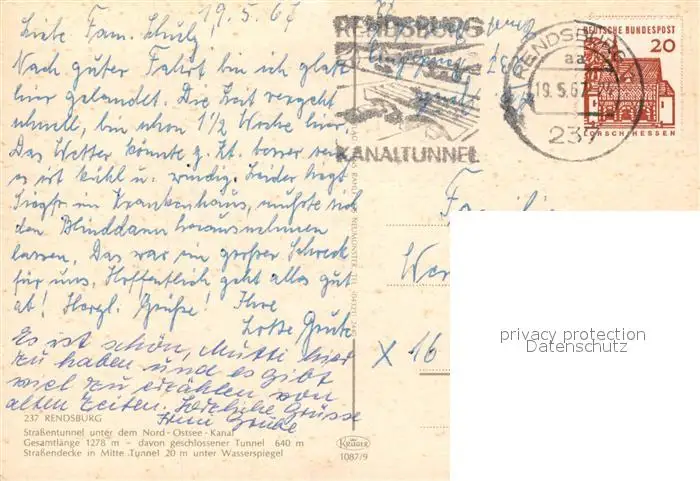 19.5.67
Liebe Fam. Schulz!
Nach guter Fahrt bin ich glatt
hier gelandet. Die Zeit vergeht
schnell, bin schon 1½ Woche hier.
Das Wetter könnte z. Zt. besser sein
es ist kühl u. windig. Leider liegt
im Krankenhaus, mußte sich
den Blinddarm herausnehmen
lassen. Das war ein großer Schreck
für uns. Hoffentlich geht alles gut
ab! Herzl. Grüße! Ihre
Lotte
Es ist schön, Mutti hier
zu haben und es gibt
viel zu erzählen von
alten Zeiten. Herzliche Grüsse
237 RENDSBURG
Straßentunnel unter dem Nord-Ostsee-Kanal
Gesamtlänge 1278 m – davon geschlossener Tunnel 640 m
Straßendecke in Mitte Tunnel 20 m unter Wasserspiegel
RENDSBURG
KANALTUNNEL
RENDSBURG
aa
19.5.67
237
DEUTSCHE BUNDESPOST
20
LORSCH/HESSEN
NEUMÜNSTER
Familie
X 16
Krüger
1087/9
privacy protection
Datenschutz